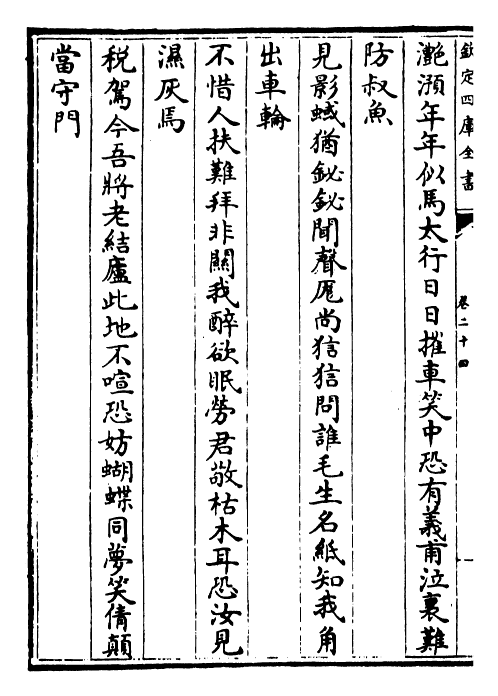 欽定四庫全書
卷二十四
灧澦年年似馬太行日日摧車笑中恐有義甫泣裏難
防叔魚
見影蜮猶鉍鉍聞聲厖尚狺狺問誰毛生名紙知我角
出車輪
不惜人扶難拜非關我醉欲眠勞君敬枯木耳恐汝見
濕灰焉
稅駕今吾將老結廬此地不喧恐妨蝴蝶同夢笑倩顛
當守門